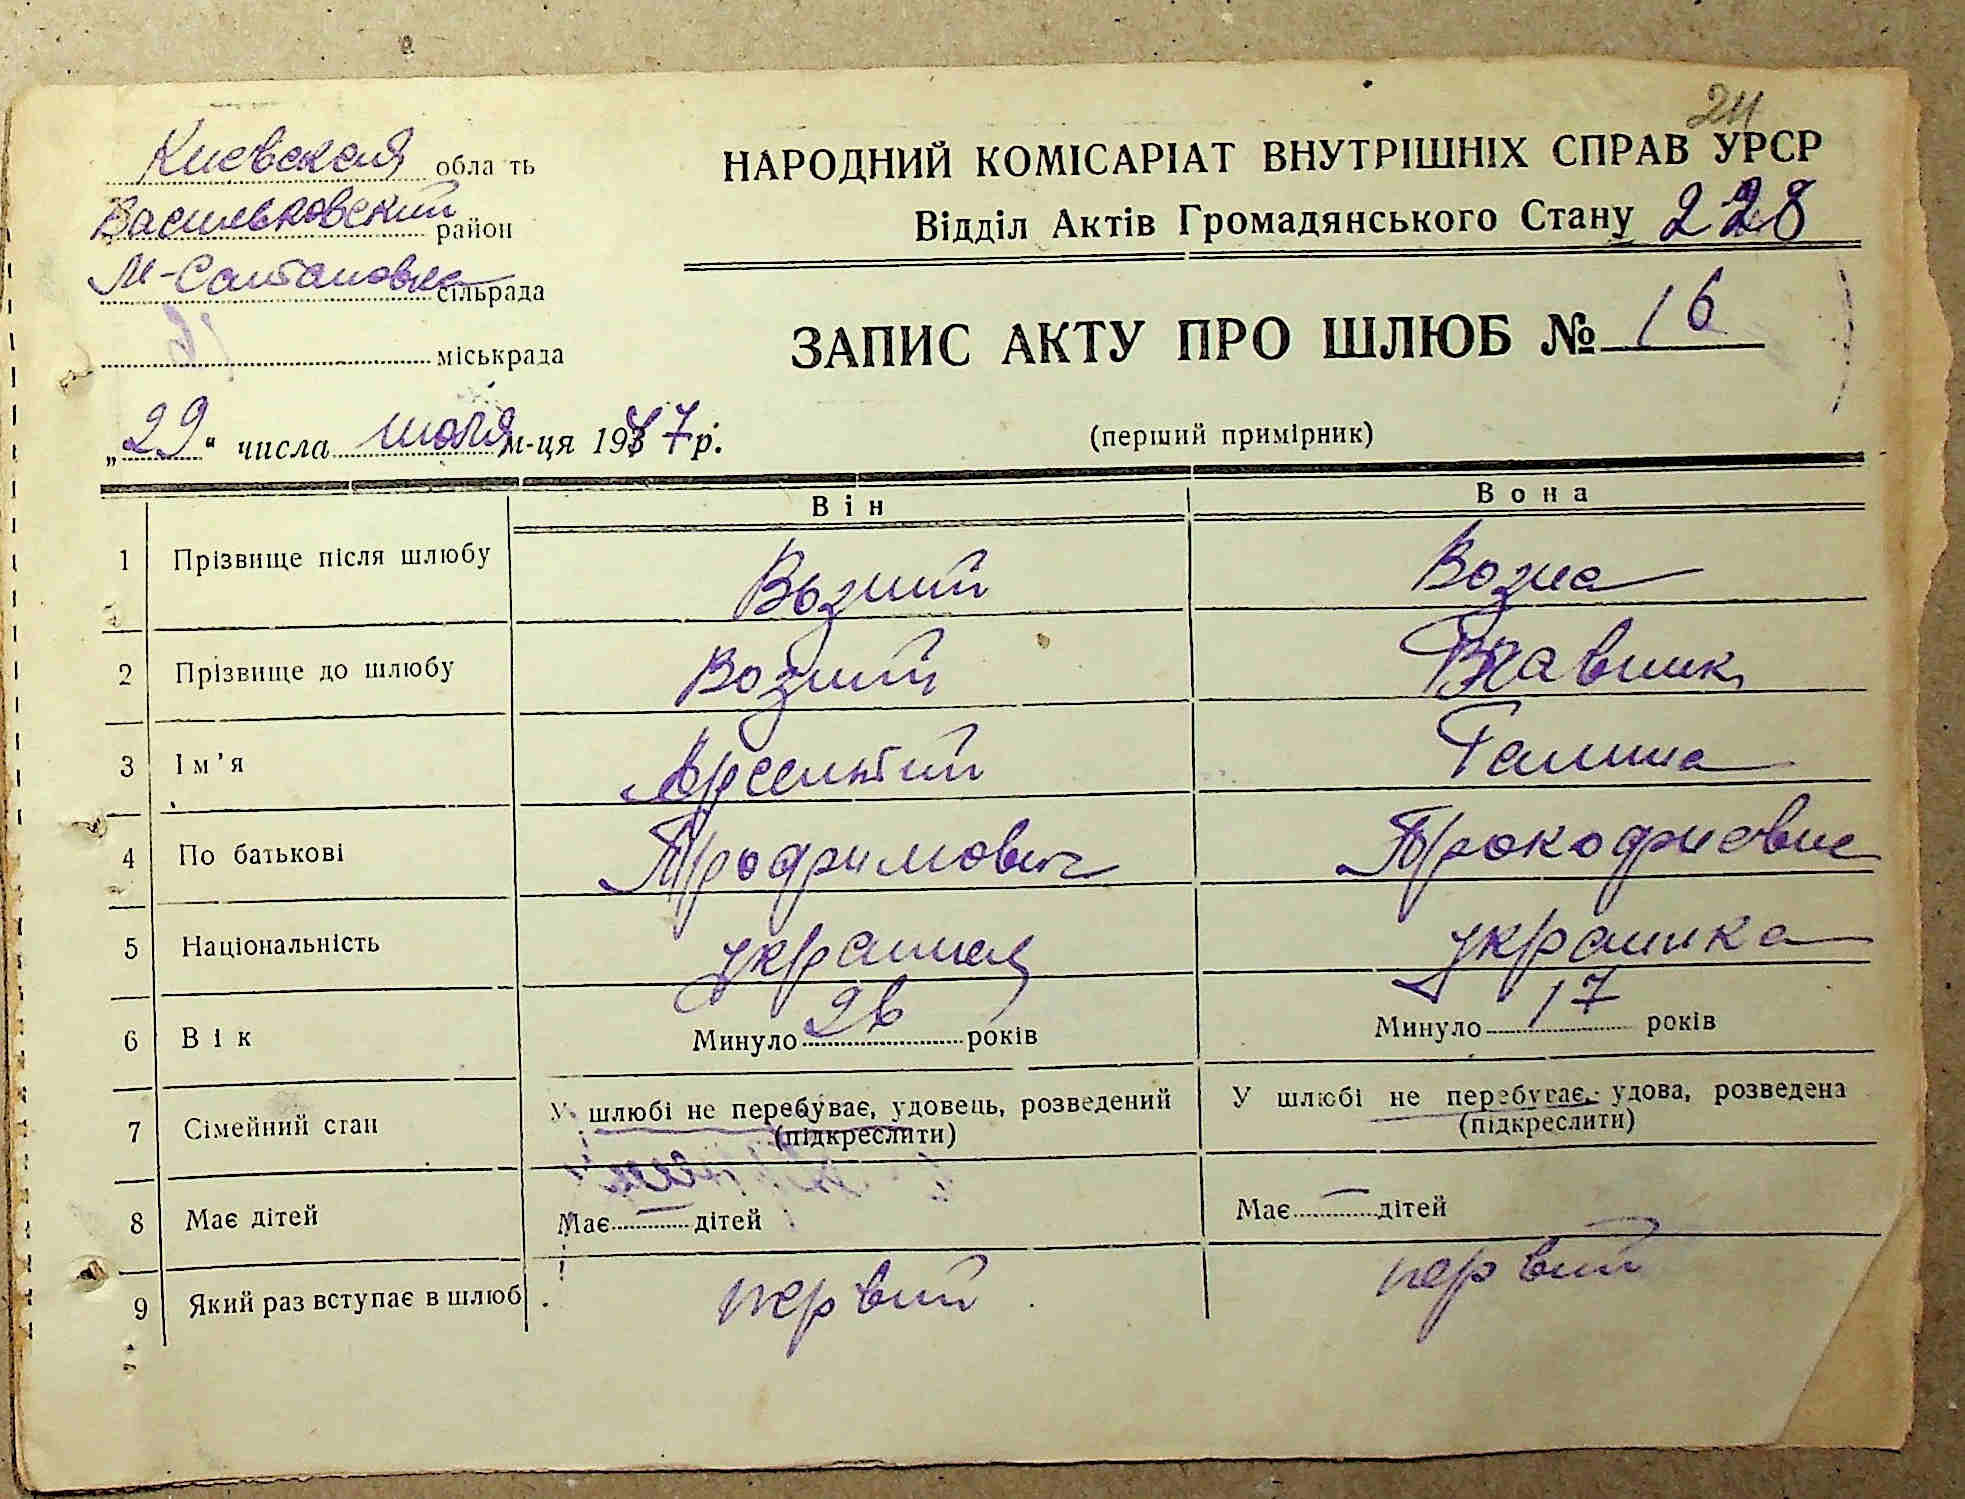 24
Киевская обла ть
Васильковский район
М-Солтановка сільрада
міськрада
НАРОДНИЙ КОМІСАРІАТ ВНУТРІШНІХ СПРАВ УРСР
Відділ Актів Громадянського Стану 228
ЗАПИС АКТУ ПРО ШЛЮБ № 16
„29“ числа июля м-ця 1947р.
(перший примірник)
Він Вона
1 Прізвище після шлюбу Возний Возна
2 Прізвище до шлюбу Возний
3 Ім’я Арсентий Галина
4 По батькові Трофимович Прокофиевна
5 Національність украинец украинка
6 Вік Минуло 26 років Минуло 17 років
7 Сімейний стан У шлюбі не перебуває, удовець, розведений У шлюбі не перебуває, удова, розведена
(підкреслити) (підкреслити)
8 Має дітей Має — дітей Має — дітей
9 Який раз вступає в шлюб первий первий